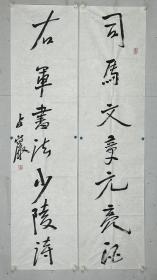 司馬文章元亮酒
右軍書法少陵詩
占巖